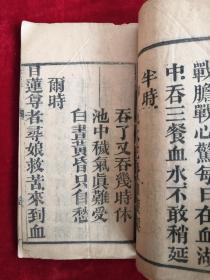 戰膽戰心驚每日在血湖
中吞三餐血水不敢稍延
半時
吞了又吞幾時休
池中穢氣眞難受
白晝黃昏只自愁
爾時
目蓮尊者尋娘救苦來到血